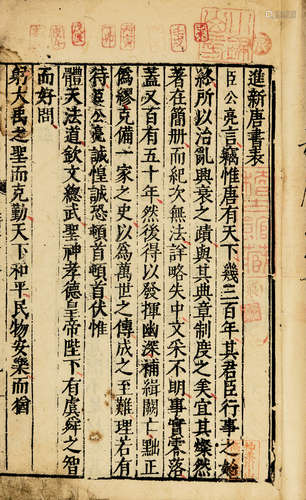 進新唐書表
臣公亮言竊惟唐有天下幾三百年其君臣行事之始
終所以治亂興衰之蹟與其典章制度之美宜其燦然
著在簡册而紀次無法詳略失中文采不明事實零落
蓋又百有五十年然後得以發揮幽深補緝闕亡黜正
偽繆克備一家之史以為萬世之傳成之至難理若有
待臣公亮誠惶誠恐頓首頓首伏惟
體天法道欽文總武聖神孝德皇帝陛下有虞舜之智
而好問
躬大禹之聖而克勤天下和平民物安樂而猶